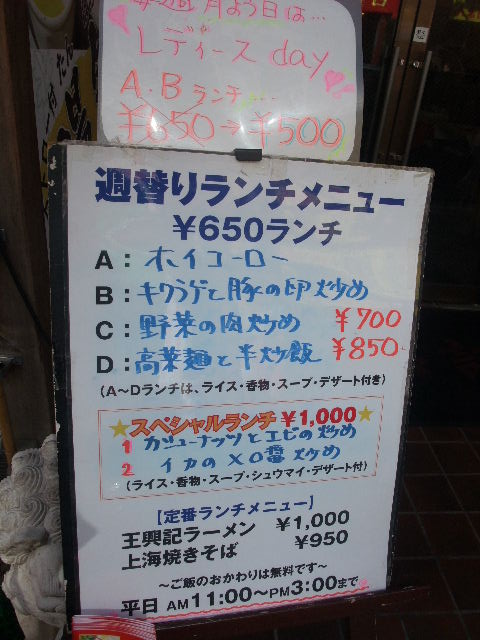 毎週月よう日は…
レディース day
A.B ランチ…
¥650→¥500
週替りランチメニュー
¥650ランチ
A：ホイコーロー
B：キクラゲと豚の卵炒め
C：野菜の肉炒め ¥700
D：高菜麺と半炒飯 ¥850
(A〜Dランチは、ライス・香物・スープ・デザート付き)
★スペシャルランチ ¥1,000★
1 カシューナッツとエビの炒め
2 イカのXO醤炒め
(ライス・香物・スープ・シュウマイ・デザート付)
【定番ランチメニュー】
王興記ラーメン ¥1,000
上海焼きそば ¥950
〜ご飯のおかわりは無料です〜
平日 AM11:00〜PM3:00まで